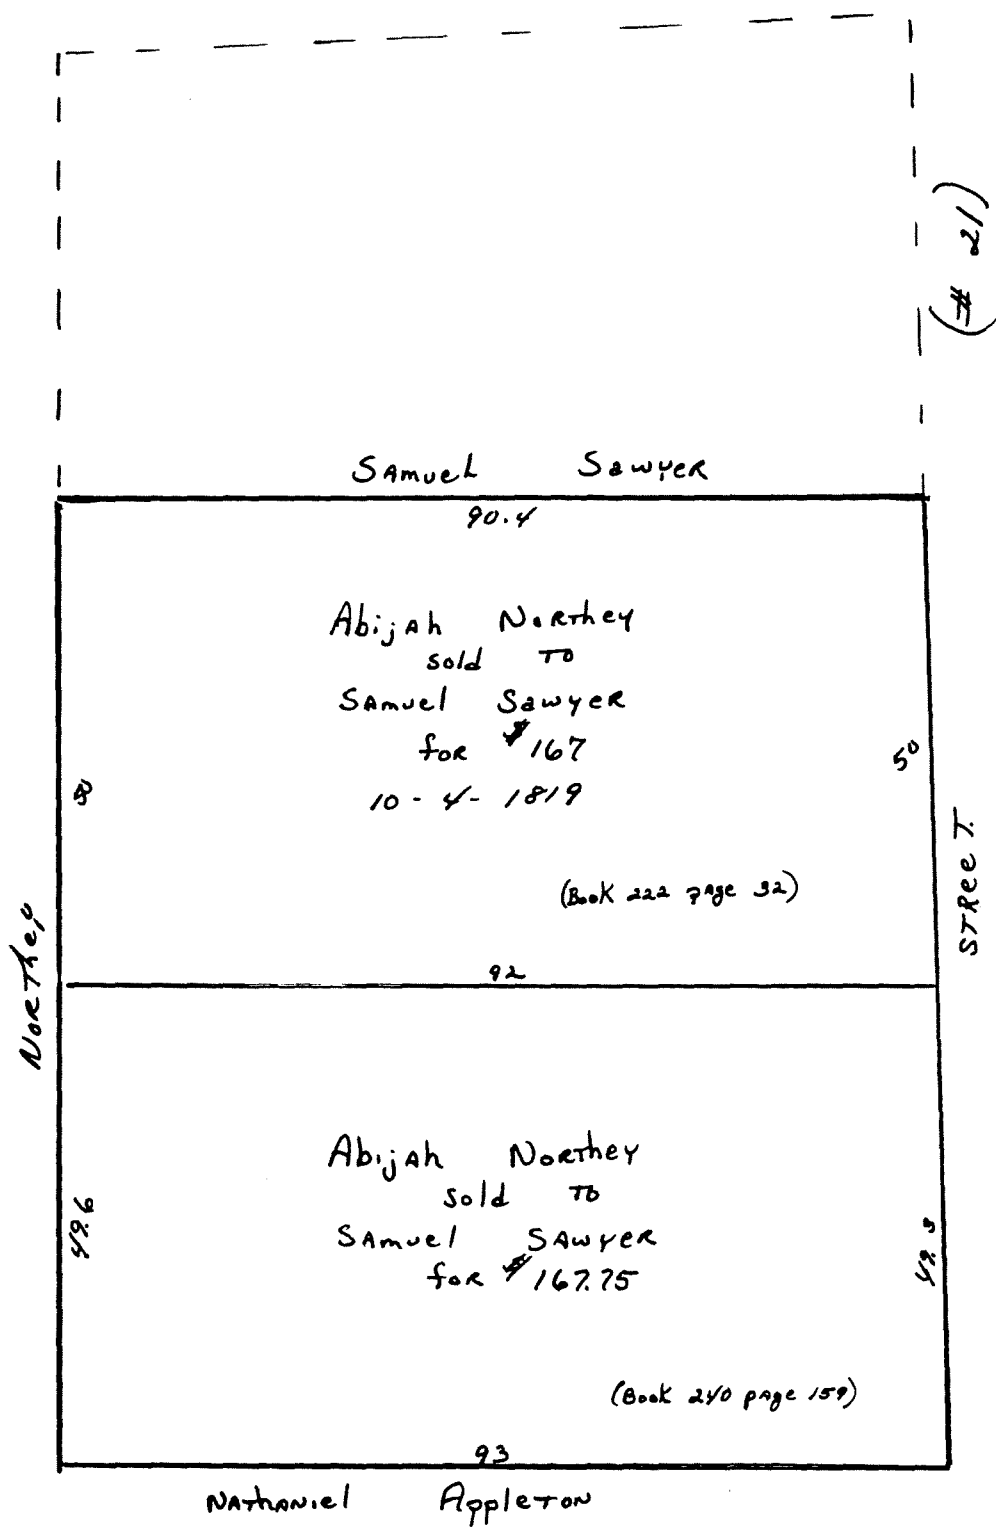 (# 21)
Samuel Sawyer
90.4
Abijah Northey
sold to
Samuel Sawyer
for $167
10-4-1819
50
50
(Book 222 page 32)
Northey
Street.
92
Abijah Northey
sold to
Samuel Sawyer
for $167.75
49.6
(Book 240 page 159)
93
Nathaniel Appleton